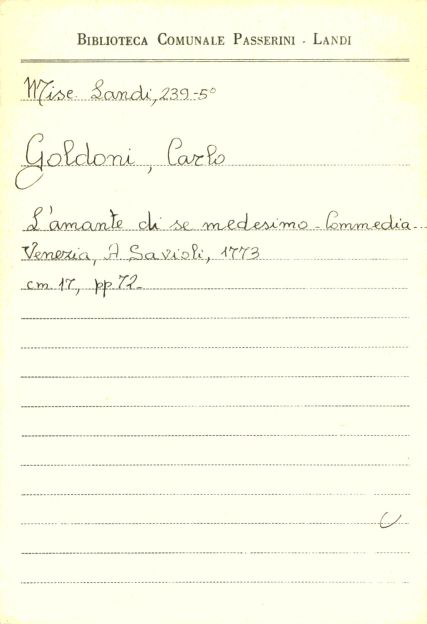 BIBLIOTECA COMUNALE PASSERINI - LANDI
Misc. Landi, 239-5°
Goldoni, Carlo
L'amante di se medesimo - Commedia -
Venezia, A. Savioli, 1773
cm. 17, pp. 72 -